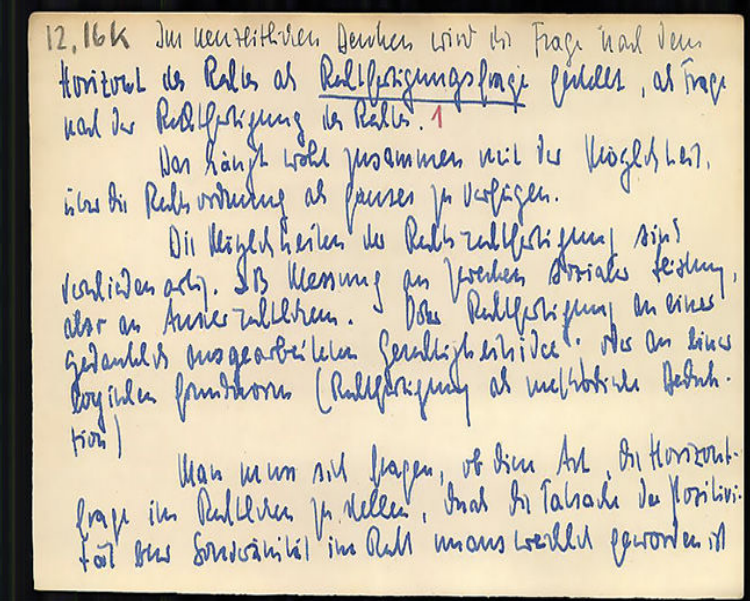 12,16k Im neuzeitlichen Denken wird die Frage nach dem
Horizont des Rechts als Rechtfertigungsfrage gestellt, als Frage
nach der Rechtfertigung des Rechts. 1
Das hängt wohl zusammen mit der Möglichkeit,
über die Rechtsordnung als ganzes zu verfügen.
Die Möglichkeiten der Rechtsrechtfertigung sind
verschieden artig. ZB Messung an Zwecken sozialer Leistung,
also an Ausserrechtlichem. Oder Rechtfertigung an einer
gedanklich ausgearbeiteten Gerechtigkeitsidee. oder an einer
logischen Grundnorm (Rechtfertigung als methodische Deduk-
tion)
Man muss sich fragen, ob diese Art, die Horizont-
frage im Rechtlichen zu stellen, durch die Tatsache der Positivi-
tät der Souveränität im Recht unausweichlich geworden ist